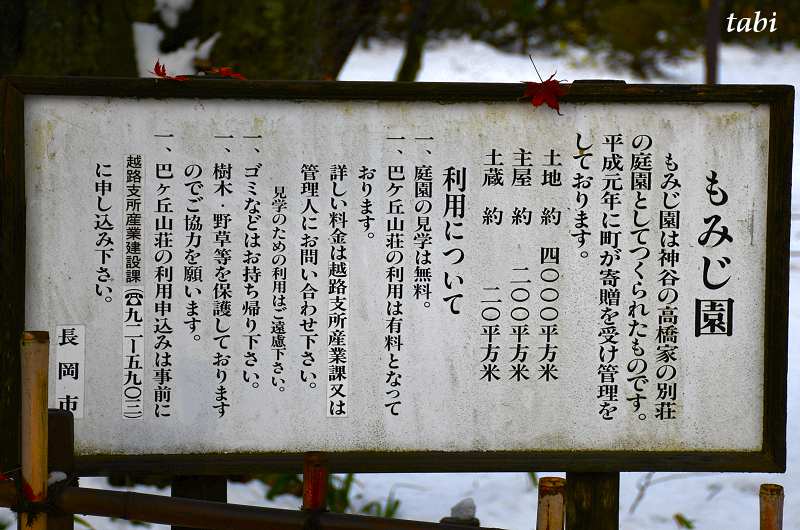 tabi
もみじ園
もみじ園は神谷の高橋家の別荘
の庭園としてつくられたものです。
平成元年に町が寄贈を受け管理を
しております。
土地 約 四〇〇〇平方米
主屋 約 二〇〇平方米
土蔵 約 二〇平方米
利用について
一、庭園の見学は無料。
一、巴ケ丘山荘の利用は有料となって
おります。
詳しい料金は越路支所産業課又は
管理人にお問い合わせ下さい。
見学のための利用はご遠慮下さい。
一、ゴミなどはお持ち帰り下さい。
一、樹木・野草等を保護しております
のでご協力を願います。
一、巴ケ丘山荘の利用申込みは事前に
越路支所産業建設課(☎九二ー五九〇三)
に申し込み下さい。
長岡市